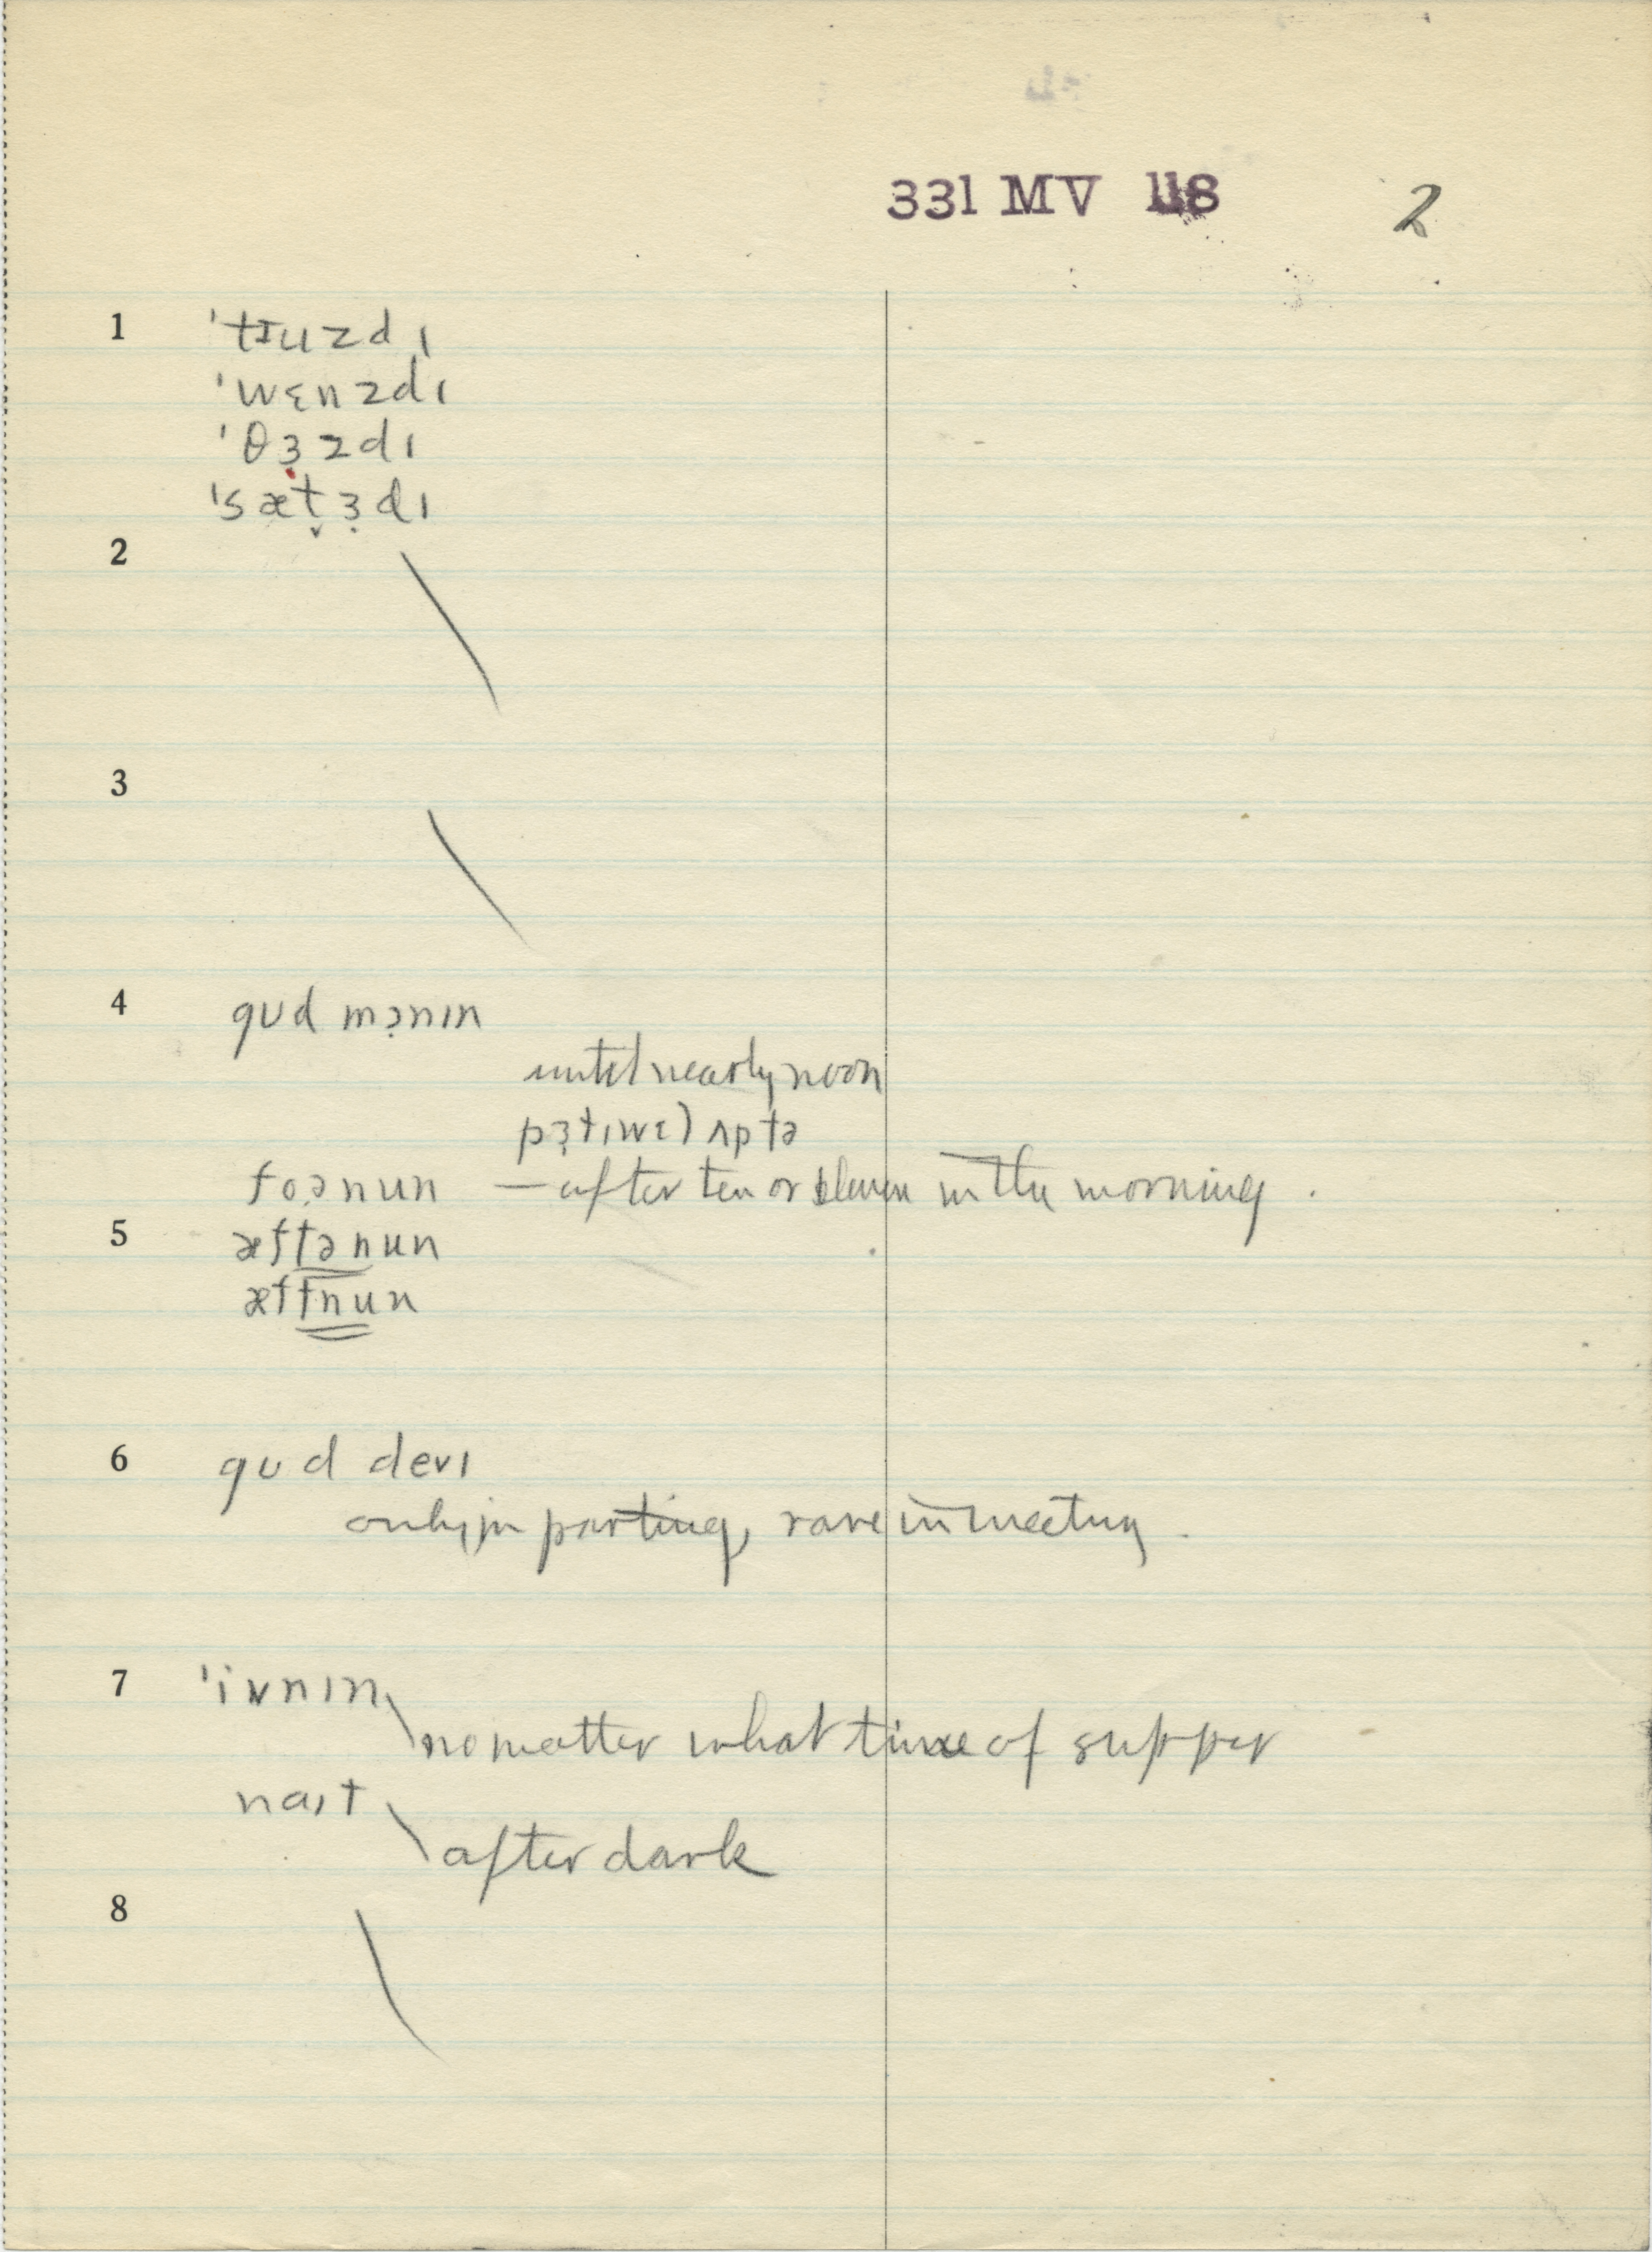 331 MV 118 2
1 ˈtɪuzdɪ
ˈwɛnzdɪ
ˈθɜ̣zdɪ
ˈsæt̬ɜ̣dɪ
2
3
4 gʊd mɔ̣nɪn
until nearly noon
pɜ̣tɪwɛl ʌptə
foə̣nun — after ten or eleven in the morning.
5 æftənun
æftnun
6 gʊd devɪ
only in parting, rare in meeting.
7 ˈivnɪn
no matter what time of supper
naɪt
after dark
8